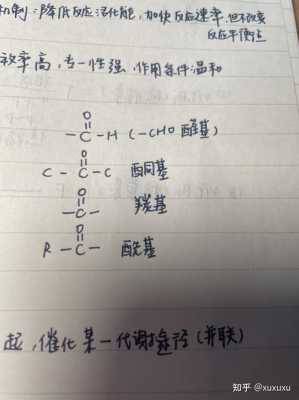 机制：降低反应活化能，加快反应速率，但不改变
反应平衡点
效率高，专一性强，作用条件温和
O
-C-H (-CHO 醛基)
O
C-C-C 酮基
O
-C- 羰基
O
R-C- 酰基
起，催化某一代谢途径（并联）
知乎 @xuxuxu